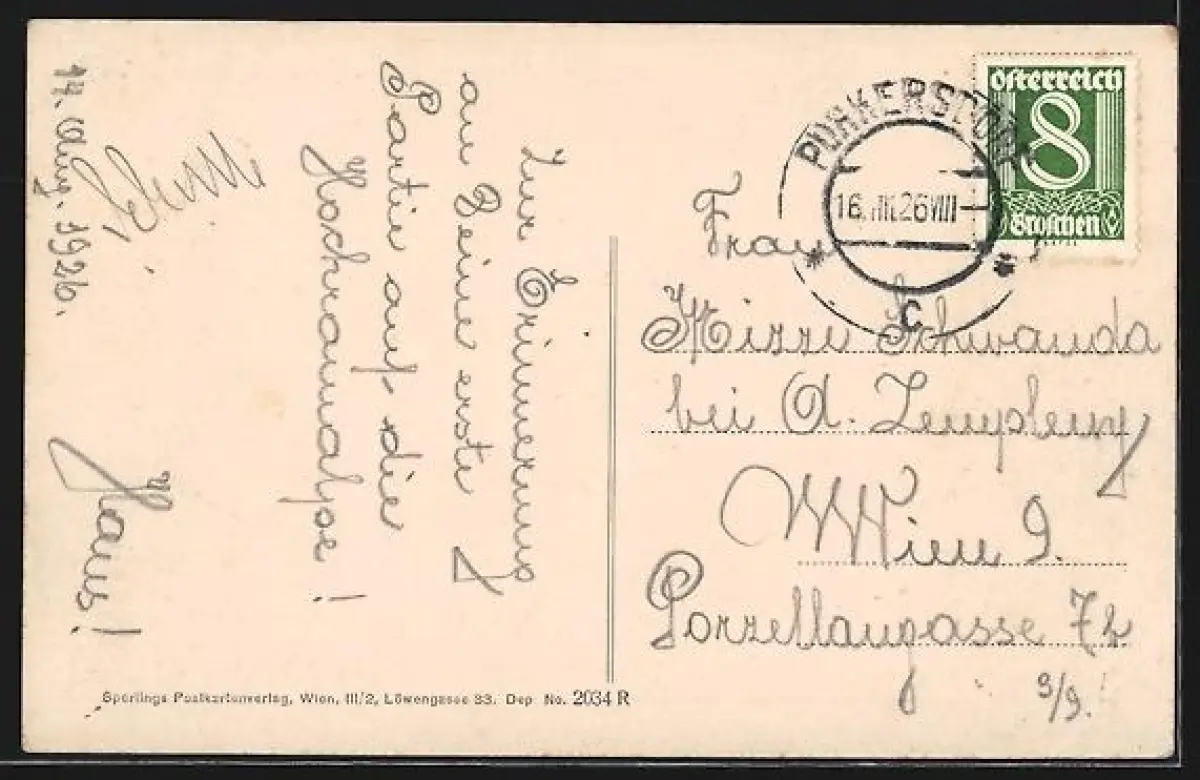 14. Aug. 1926.
Zur Erinnerung
an Deine erste
Partie auf die
Hochramalpe!
Hans!
PURKERSDORF
16.VIII.26 VIII
C
österreich
8
Groschen
Frau
Mizzi Schwanda
bei A. Zempleny
Wien 9.
Porzellangasse 72
9/9.
Sperlings Postkartenverlag, Wien, III/2, Löwengasse 33. Dep No. 2034 R